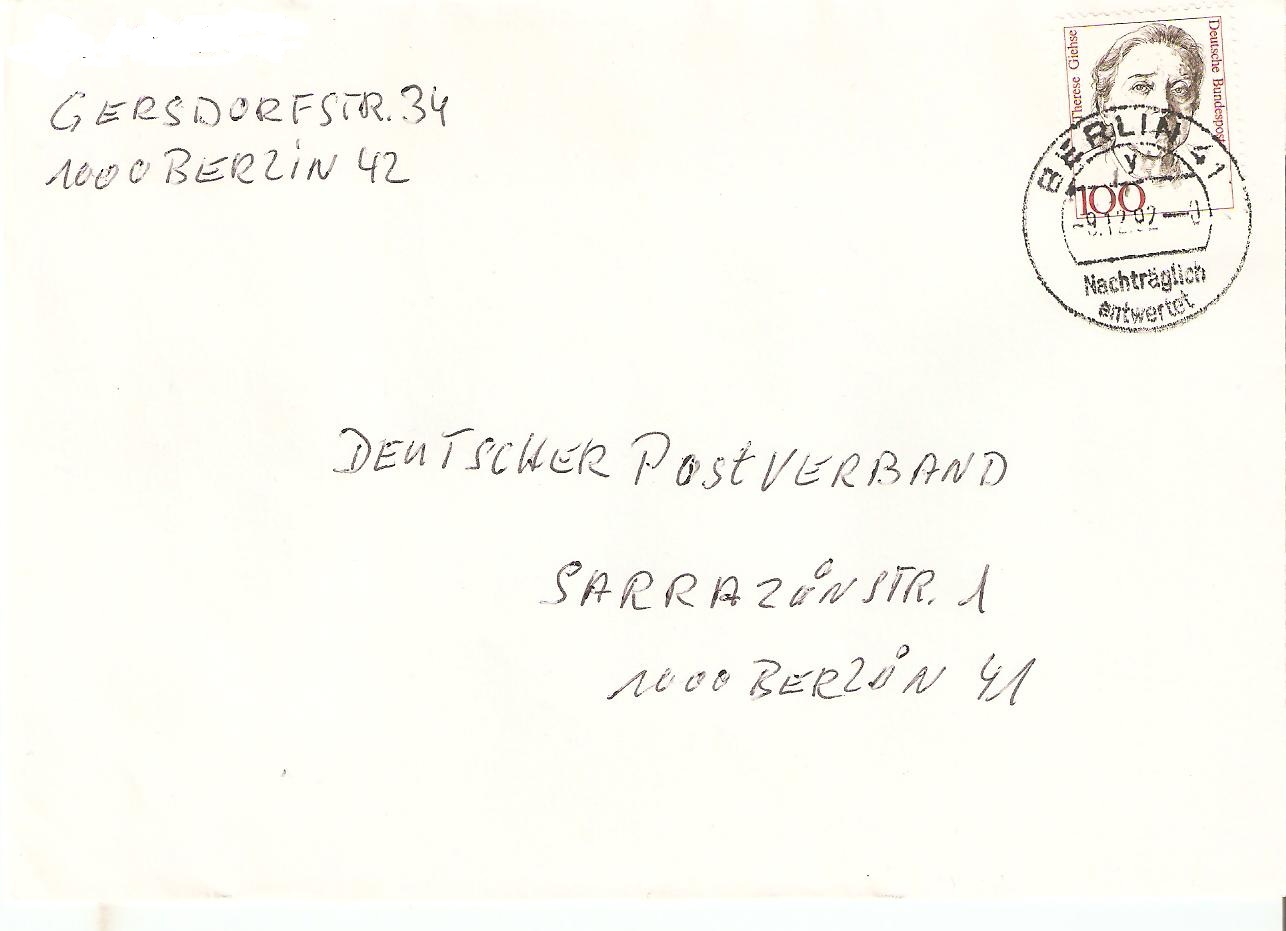 GERSDORFSTR. 34
1000 BERLIN 42
Therese Giehse
Deutsche Bundespost
100
BERLIN 41
y
-9.12.92
Nachträglich
entwertet
DEUTSCHER POSTVERBAND
SARRAZINSTR. 1
1000 BERLIN 41